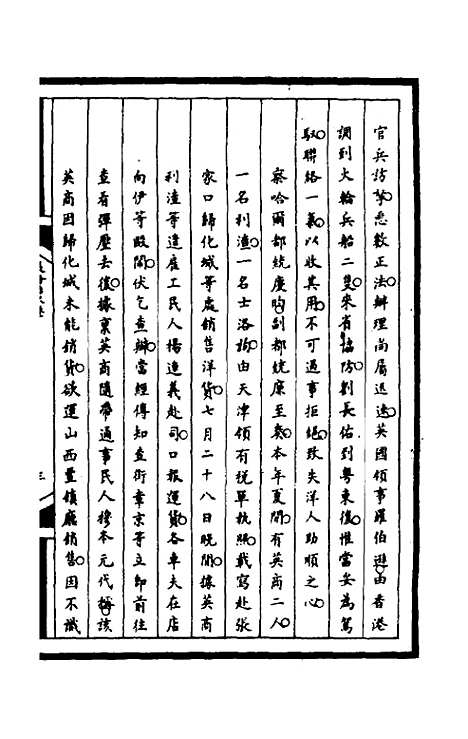 官兵訪拏悉數正法辦理尚屬迅速英國領事羅伯遜由香港
調到火輪兵船二隻來省協防劉長佑到粵東後惟當妥為駕
馭聯絡一氣以收其用不可遇事拒絕致失洋人助順之心
察哈爾都統慶昀副都統慶至奏本年夏間有英商二人
一名利渣一名士洛均由天津領有稅單執照載寫赴張
家口歸化城等處銷售洋貨七月二十八日晚間據英商
利渣等遣雇工民人楊進義赴司口報運貨各車夫在店
向伊等毆鬧伏乞查辦當經得知查街章京等立即前往
查看彈壓去後據稟英商隨帶通事民人穆本元代稱該
英商因歸化城未能銷貨欲運山西豐鎮廳銷售因不識